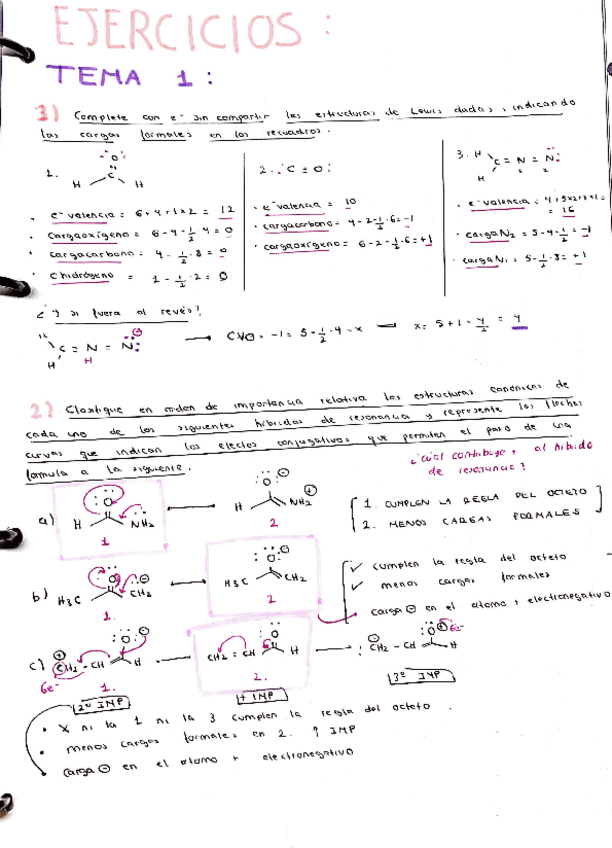 EJERCICIOS:
TEMA 1:
1) Complete con e- sin compartir las estructuras de Lewis dadas, indicando
las cargas formales en los recuadros.
1. :O: C H H
· e- valencia = 6+4+1x2 = 12
· cargaoxígeno = 6-4-1/2 4 = 0
· cargacarbono = 4-1/2·8 = 0
· c hidrógeno = 1-1/2·2 = 0
2. :C≡O:
· e- valencia = 10
· cargacarbono = 4-2-1/2·6 = -1
· cargaoxígeno = 6-2-1/2·6 = +1
3. H H C = N = N:
· e- valencia = 4+5x2+2x1 =
= 16
· carga N2 = 5-4-1/2 = -1
· carga N1 = 5-1/2·8 = +1
¿Y si fuera al revés?
H H C = N = N: ⊖ H → CNO = -1 = 5-1/2·4-x → x = 5+1-4/2 = 4
2) Clasifique en orden de importancia relativa las estructuras canónicas de
cada uno de los siguientes híbridos de resonancia y represente las flechas
curvas que indican los efectos conjugativos que permiten el paso de una
fórmula a la siguiente.
¿cuál contribuye + al híbrido
de resonancia?
a) H O NH2 1 → H O ⊖ NH2 ⊕ 2
1. CUMPLEN LA REGLA DEL OCTETO
2. MENOS CARGAS FORMALES
b) H3C O CH2 ⊖ 1. → H3C O ⊖ CH2 2
✓ cumplen la regla del octeto
✓ menos cargas formales
carga ⊖ en el atomo + electronegativo
c) ⊕ CH2 - CH O ⊖ H 6e- 1. → CH2 = CH O H 2. → ⊖ :CH2 - CH O ⊕ 6e- H
2º IMP
1+ IMP
3º IMP
· X ni la 1 ni la 3 cumplen la regla del octeto.
· menos cargas formales en 2. ↑ IMP
· carga ⊖ en el atomo + electronegativo